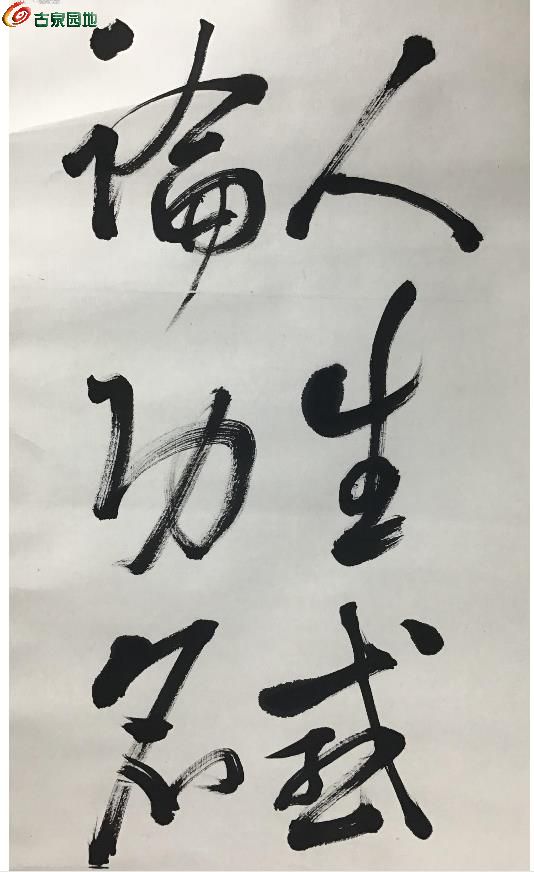 古泉园地
人生
論功名